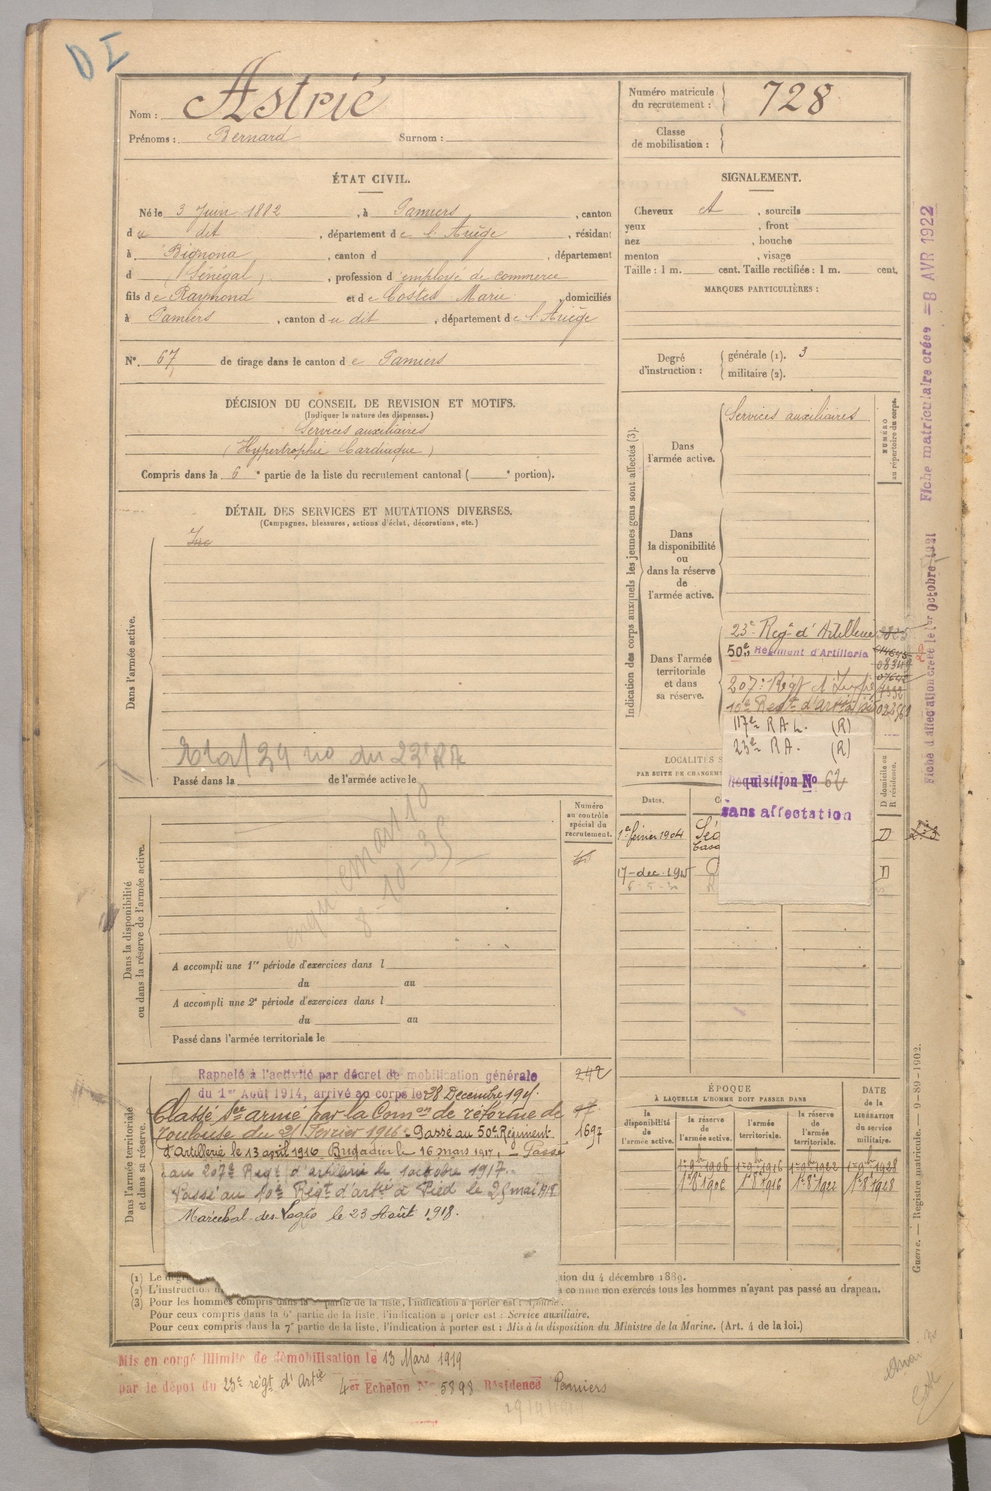 D I
Nom : Astrié
Prénoms : Bernard Surnom :
Numéro matricule du recrutement : 728
Classe de mobilisation :
ÉTAT CIVIL.
Né le 3 Juin 1882, à Pamiers, canton
du dit, département de l'Ariège, résidant
à Bignona, canton d , département
d (Sénégal), profession d'employé de commerce
fils de Raymond et de Costes Marie, domiciliés
à Pamiers, canton du dit, département de l'Ariège
N° 67 de tirage dans le canton de Pamiers
SIGNALEMENT.
Cheveux , sourcils
yeux , front
nez , bouche
menton , visage
Taille : 1 m. cent. Taille rectifiée : 1 m. cent.
MARQUES PARTICULIÈRES :
Degré d'instruction : générale (1). 3
militaire (2).
DÉCISION DU CONSEIL DE REVISION ET MOTIFS.
(Indiquer la nature des dispenses.)
Services auxiliaires
(Hypertrophie Cardiaque)
Compris dans la 6e partie de la liste du recrutement cantonal ( e portion).
DÉTAIL DES SERVICES ET MUTATIONS DIVERSES.
(Campagnes, blessures, actions d'éclat, décorations, etc.)
Dans l'armée active.
Passé dans la de l'armée active le
Indication des corps auxquels les jeunes gens sont affectés (3).
Dans l'armée active.
Services auxiliaires
NUMÉRO au répertoire du corps.
Dans la disponibilité ou dans la réserve de l'armée active.
Dans l'armée territoriale et dans sa réserve.
23e Regt d'Artillerie
50e Régiment d'Artillerie
207e Régt d'
10e Regt d'artie à
117e R.A.L. (R)
23e R.A. (R)
Requisition No 62
sans affectation
LOCALITÉS S
PAR SUITE DE CHANGEM
D domicile ou R résidence.
Dates.
1er février 1904 D
17 dec. 1915 D
Fiche d'affectation créée le 1er Octobre 1921
Fiche matriculaire créée = 8 AVR 1922
Dans la disponibilité ou dans la réserve de l'armée active.
Numéro au contrôle spécial du recrutement.
A accompli une 1re période d'exercices dans l
du au
A accompli une 2e période d'exercices dans l
du au
Passé dans l'armée territoriale le
Dans l'armée territoriale et dans sa réserve.
Rappelé à l'activité par décret de mobilisation générale
du 1er Août 1914, arrivé au corps le 28 Décembre 191
Classé Sce armé par la Comon de réforme de
Toulouse du 21 Février 1916. Passé au 50e Régiment
d'Artillerie le 13 avril 1916. Brigadier le 16 mars 1917. Passé
au 207e Regt d'artillerie le 1 octobre 1917.
Passé au 10e Régt d'artie à Pied le 25 mai 1918
Maréchal des Logis le 23 Août 1918.
242
1697
ÉPOQUE
À LAQUELLE L'HOMME DOIT PASSER DANS
la disponibilité de l'armée active.
la réserve de l'armée active.
l'armée territoriale.
la réserve de l'armée territoriale.
DATE de la LIBÉRATION du service militaire.
1er 9bre 1906 1er 9bre 1916 1er 9bre 1922 1er 9bre 1928
1er 8bre 1906 1er 8bre 1916 1er 8bre 1922 1er 8bre 1928
(1) Le degré tion du 4 décembre 1889.
(2) L'instruction à comme non exercés tous les hommes n'ayant pas passé au drapeau.
(3) Pour les hommes compris dans la partie de la liste, l'indication à porter est : Ajourné.
Pour ceux compris dans la 6e partie de la liste, l'indication à porter est : Service auxiliaire.
Pour ceux compris dans la 7e partie de la liste, l'indication à porter est : Mis à la disposition du Ministre de la Marine. (Art. 4 de la loi.)
Guerre. — Registre matricule. — 9-89-1902.
Mis en congé illimité de démobilisation le 13 Mars 1919
par le dépôt du 23e régt d'Artie 4er Echelon No 5898 Résidence Pamiers